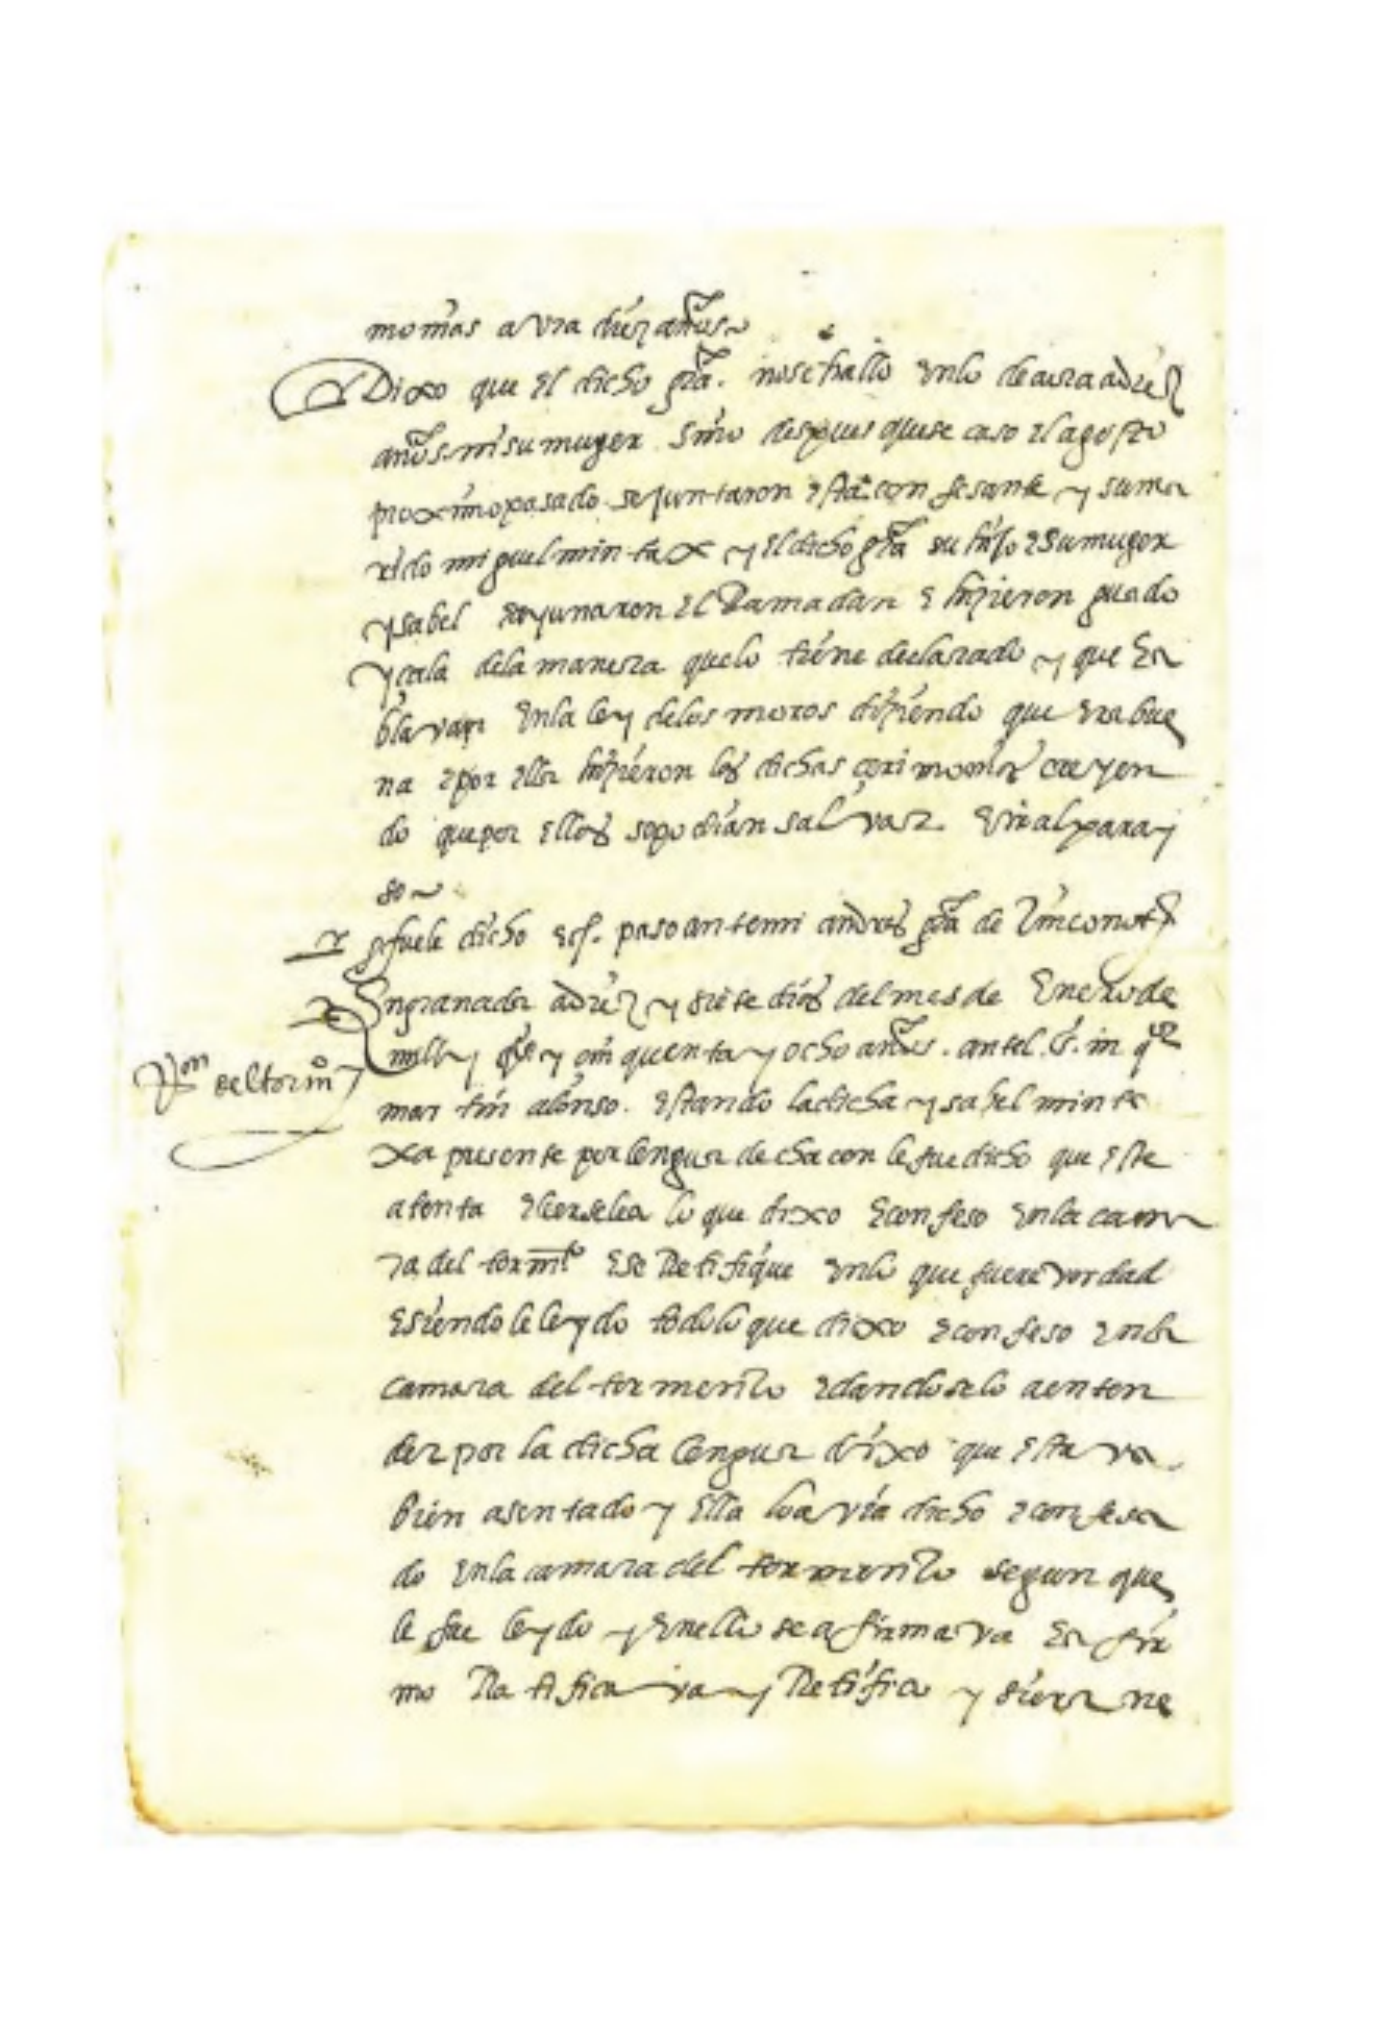 monias avra diez años
Dixo que el dicho gra. no se hallo en lo de avra a diez
años ni su muger sino despues que se caso el agosto
proximo pasado se juntaron esta confesante y su ma
rido miguel mintax y el dicho gra su hijo e su muger
ysabel e ayunaron el Ramadan e hizieron guado
y cala de la manera que lo tiene declarado y que ha
blavan en la ley de los moros diziendo que era bue
na e por ella hizieron las dichas cerimonias creyen
do que por ellas se podian salvar e yr al paray
so
fuele dicho paso ante mi andres gra de
En granada a diez y siete dias del mes de Enero de
mill y qos y cinquenta y ocho años. ante l s. inqor
Ron del tormo
martin alonso. Estando la dicha ysabel minta
xa presente por lengua de chacon le fue dicho que este
atenta e leersela lo que dixo e confeso en la cama
ra del tormto e se Retifique en lo que fuere verdad
E siendole leydo todo lo que dixo e confeso en la
camara del tormento e dandoselo a enten
der por la dicha lengua dixo que estava
bien asentado y ella lo avia dicho e confesa
do en la camara del tormento segun que
le fue leydo y en ello se afirmava e afir
mo Ratificava y Retifico y si era ne